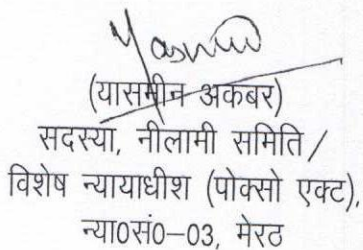 Yasmin
(यासमीन अकबर)
सदस्या, नीलामी समिति /
विशेष न्यायाधीश (पोक्सो एक्ट),
न्या0सं0-03, मेरठ